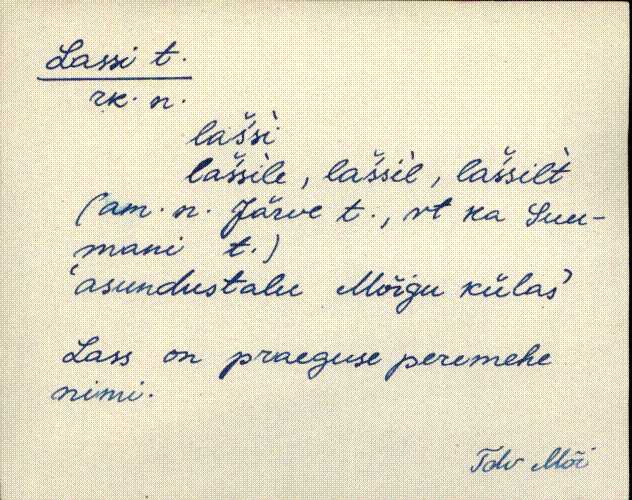 Lassi t.
rk. n.
lašsì
lašsìle, lašsìl, lašsìlt
(am. n. Järve t., vt ka Suu-
mani t.)
‘asundustalu Mõigu külas’
Lass on praeguse peremehe
nimi.
Tdv Mõi